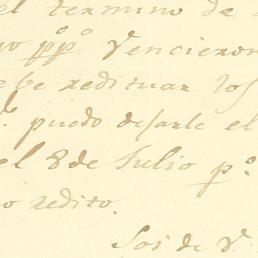 el termino de
pp.º Vencieron
ebe redituar los
puedo dejarle el
el 8 de Julio p.º
o redito.
Soi de V.